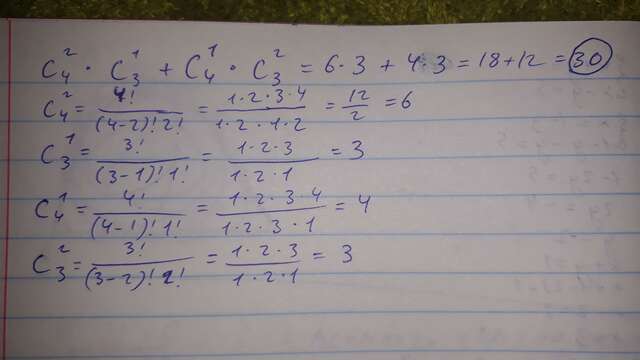 C₄² · C₃¹ + C₄¹ · C₃² = 6·3 + 4·3 = 18+12 = 30
C₄² = 4! / (4-2)! 2! = 1·2·3·4 / 1·2·1·2 = 12/2 = 6
C₃¹ = 3! / (3-1)! 1! = 1·2·3 / 1·2·1 = 3
C₄¹ = 4! / (4-1)! 1! = 1·2·3·4 / 1·2·3·1 = 4
C₃² = 3! / (3-2)! 2! = 1·2·3 / 1·2·1 = 3